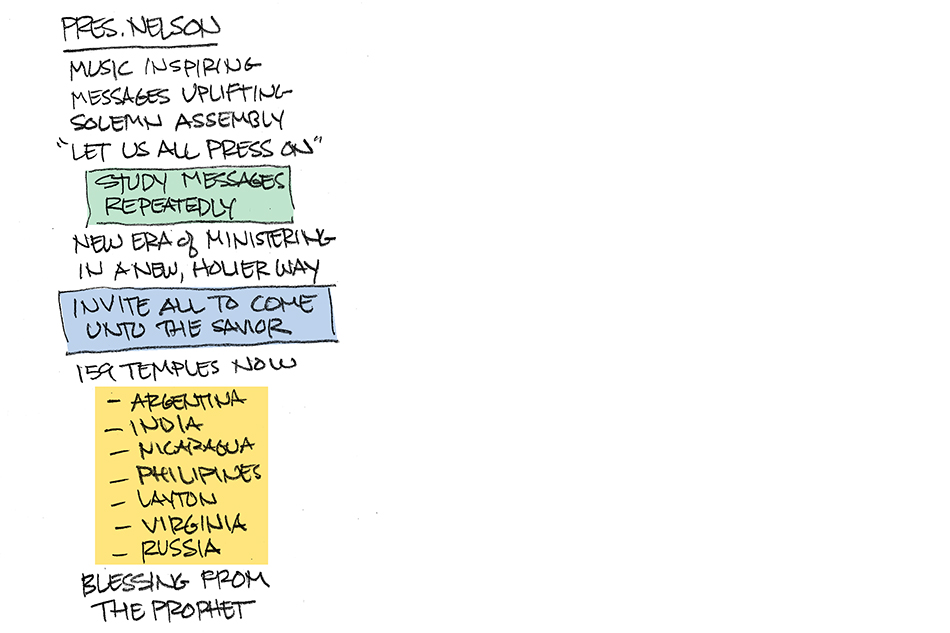 PRES. NELSON
MUSIC INSPIRING
MESSAGES UPLIFTING
SOLEMN ASSEMBLY
"LET US ALL PRESS ON"
STUDY MESSAGES
REPEATEDLY
NEW ERA of MINISTERING
IN A NEW, HOLIER WAY
INVITE ALL TO COME
UNTO THE SAVIOR
159 TEMPLES NOW
- ARGENTINA
- INDIA
- NICARAGUA
- PHILIPINES
- LAYTON
- VIRGINIA
- RUSSIA
BLESSING FROM
THE PROPHET